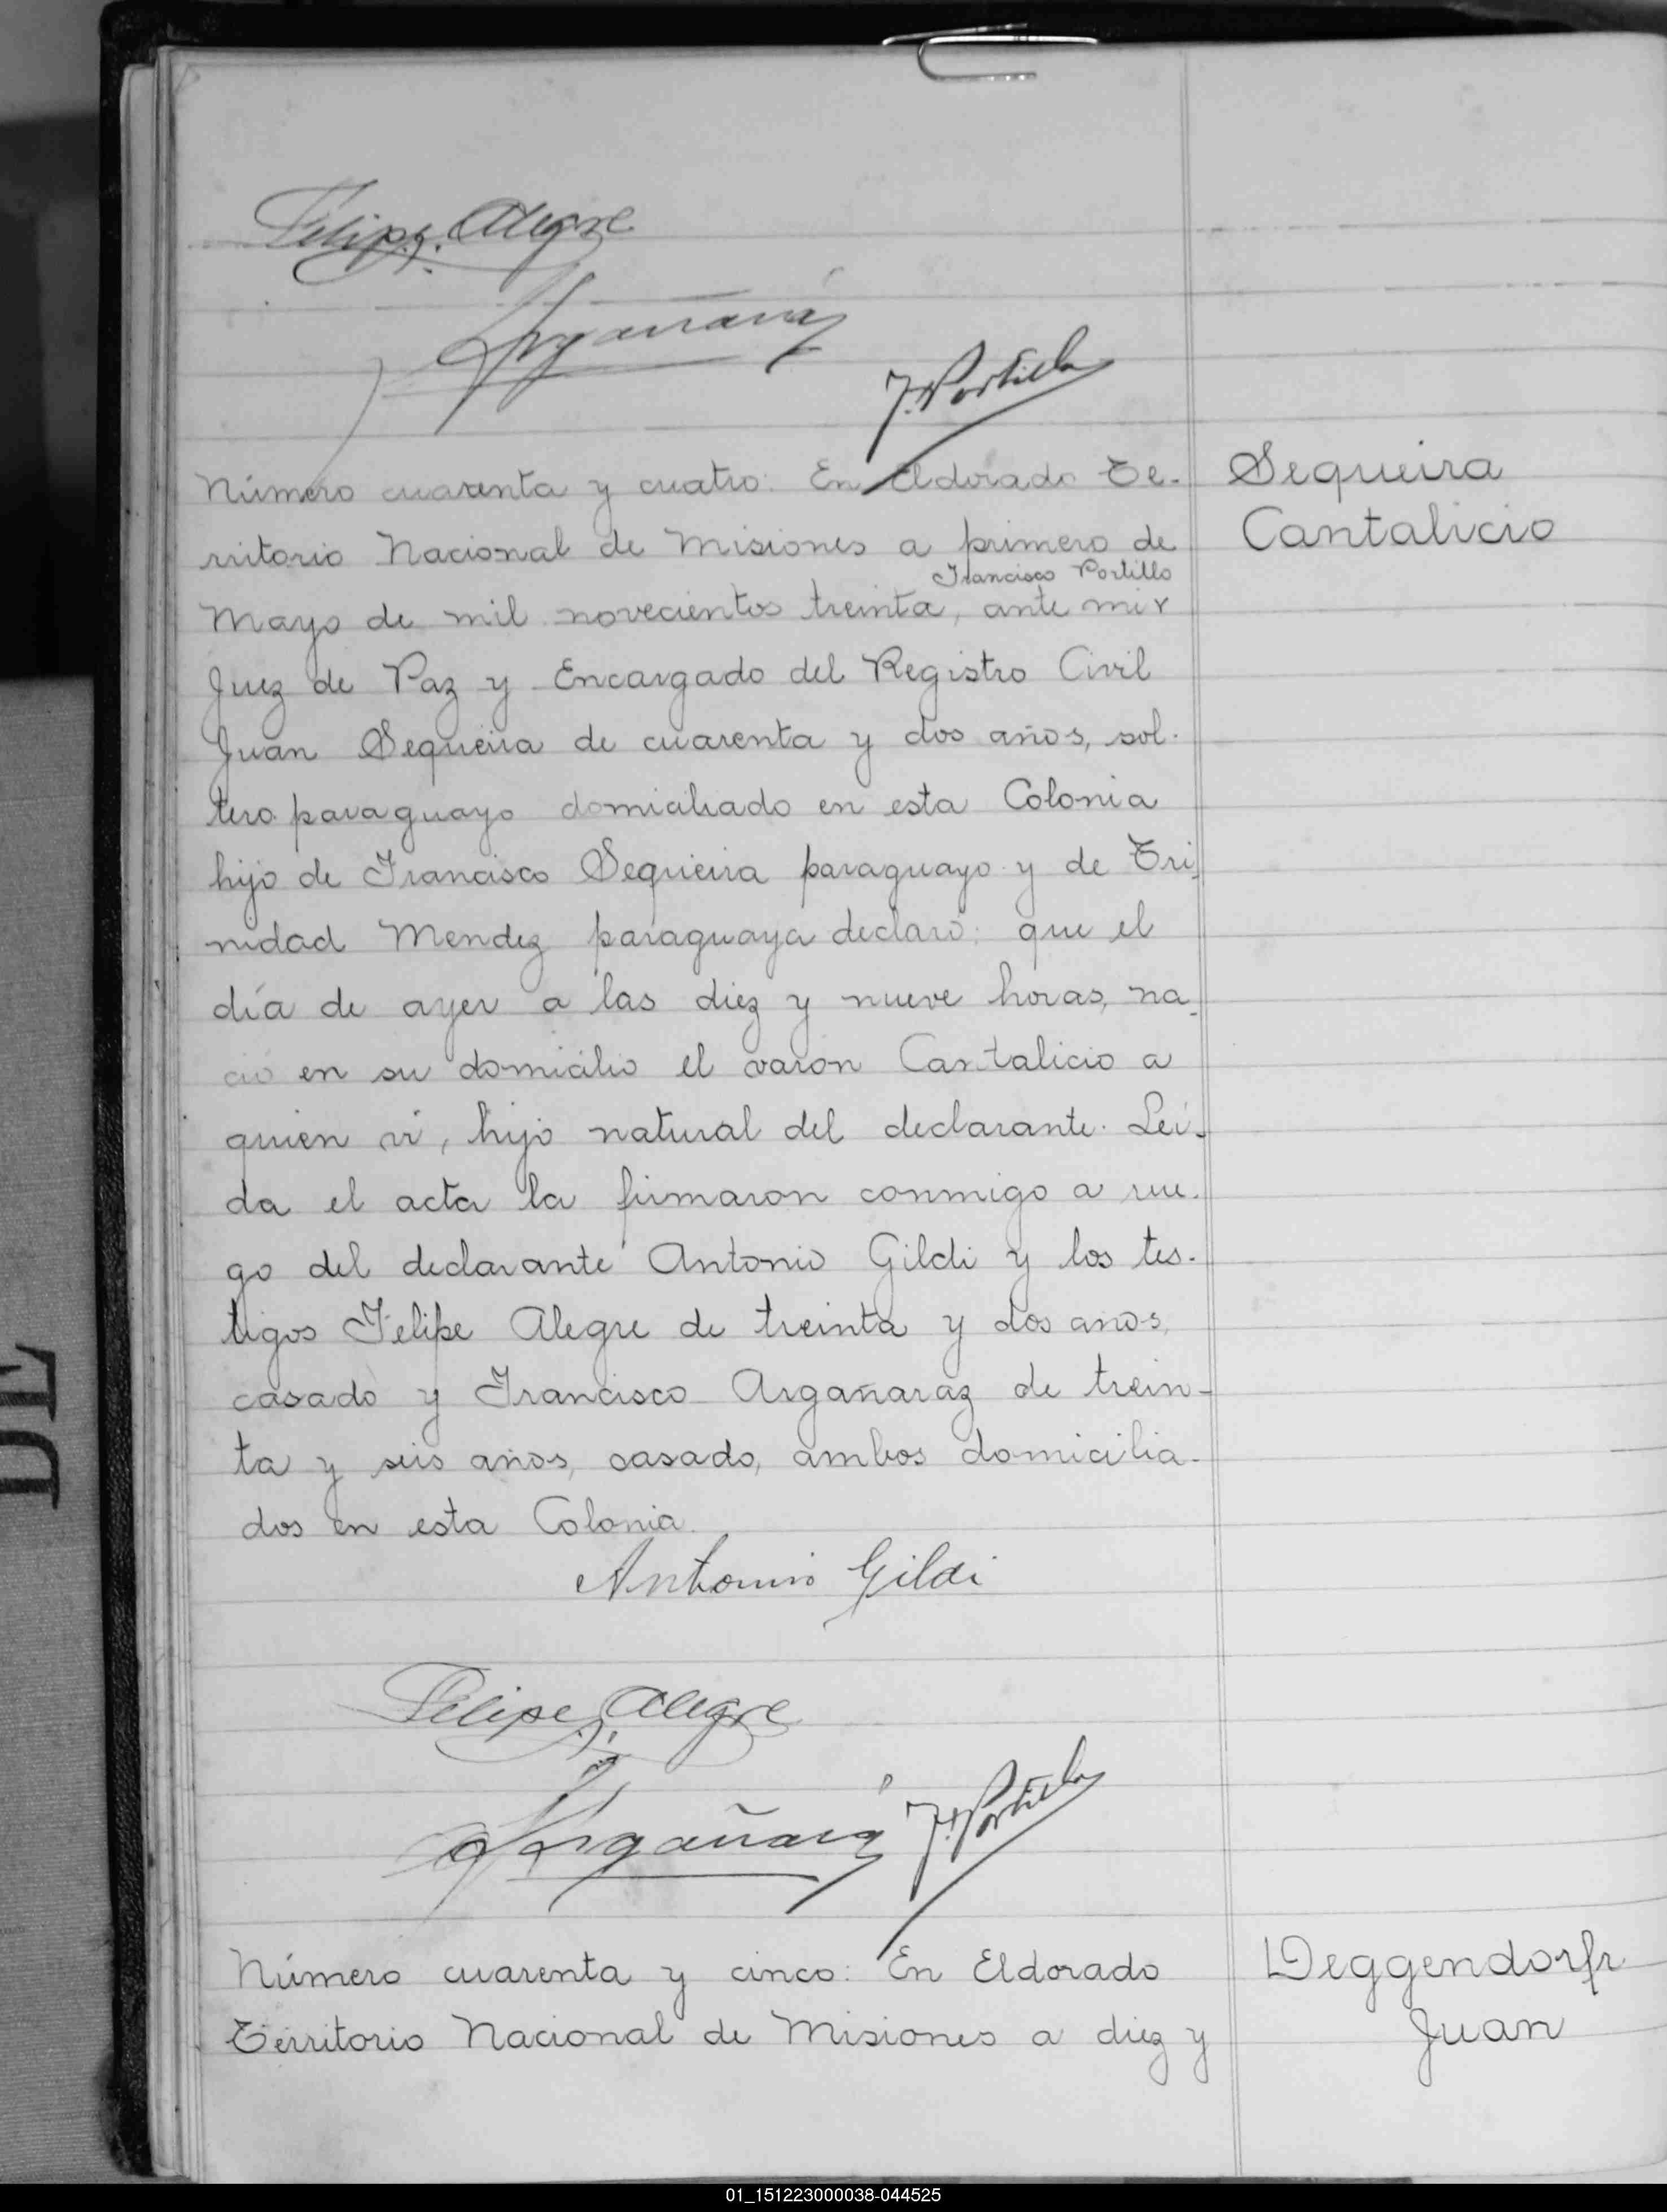 Felipe Alegre
Argañaraz
F. Portillo
Número cuarenta y cuatro: En Eldorado Te-
rritorio Nacional de Misiones a primero de
Francisco Portillo
Mayo de mil novecientos treinta, ante mi
Juez de Paz y Encargado del Registro Civil
Juan Sequeira de cuarenta y dos años, sol-
tero paraguayo domiciliado en esta Colonia
hijo de Francisco Sequeira paraguayo y de Tri-
nidad Mendez paraguaya declaró: que el
día de ayer a las diez y nueve horas, na-
ció en su domicilio el varon Cantalicio a
quien vi, hijo natural del declarante. Leí-
da el acta la firmaron conmigo a rue-
go del declarante Antonio Gildi y los tes-
tigos Felipe Alegre de treinta y dos años,
casado y Francisco Argañaraz de trein-
ta y seis años, casado, ambos domicilia-
dos en esta Colonia.
Antonio Gildi
Felipe Alegre
Argañaraz
F. Portillo
Número cuarenta y cinco: En Eldorado
Territorio Nacional de Misiones a diez y
Sequeira
Cantalicio
Deggendorfr
Juan
DE
01_151223000038-044525